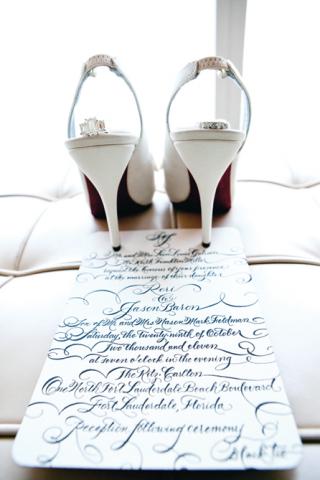 Mr. and Mrs.
request the honour of your presence
at the marriage of their daughter
Rori
to
Jason Baron
Son of Mr. and Mrs. Mason Mark Feldman
Saturday, the twenty-ninth of October
Two thousand and eleven
at seven o'clock in the evening
The Ritz Carlton
One North Fort Lauderdale Beach Boulevard
Fort Lauderdale, Florida
Reception following ceremony
Black tie